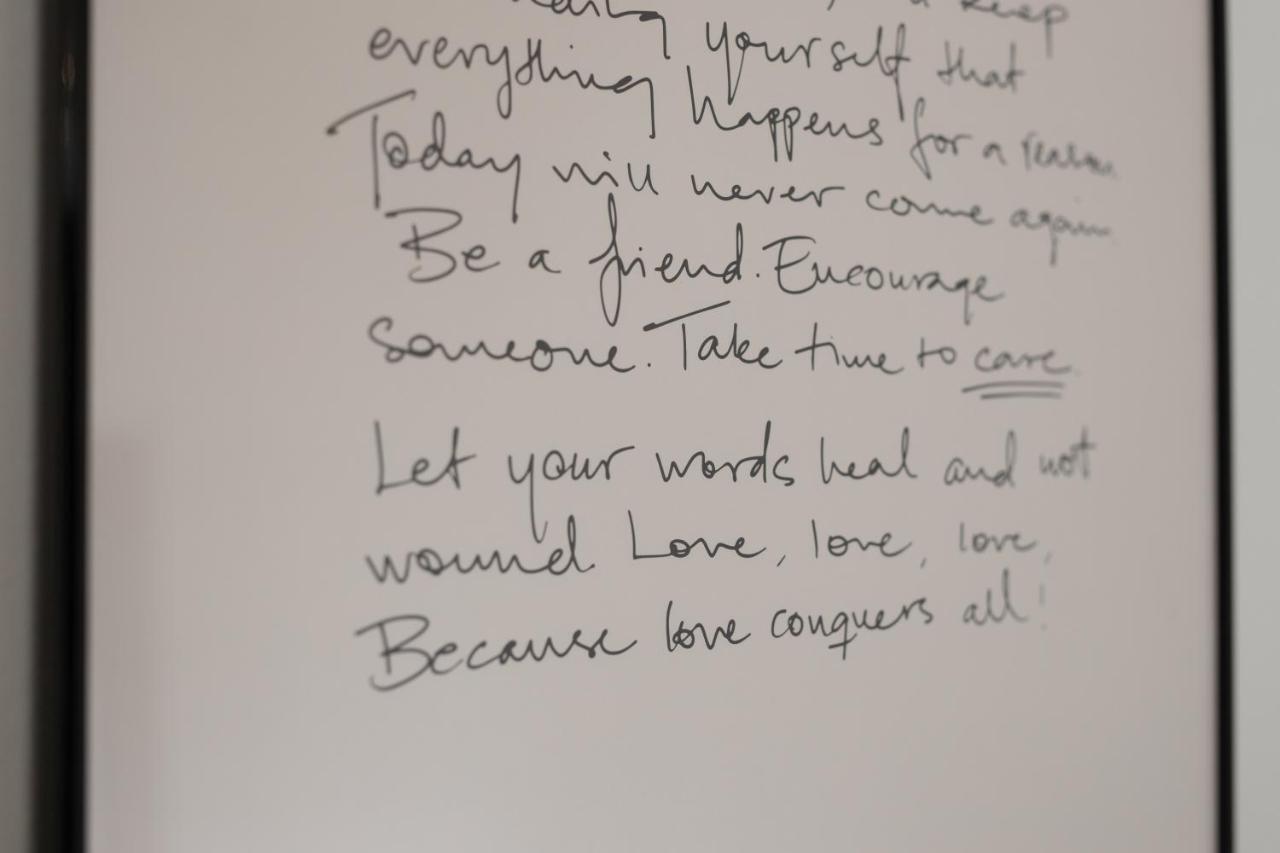 keep
everything yourself that
happens for a reason
Today will never come again
Be a friend. Encourage
someone. Take time to care.
Let your words heal and not
wound. Love, love, love,
Because love conquers all!